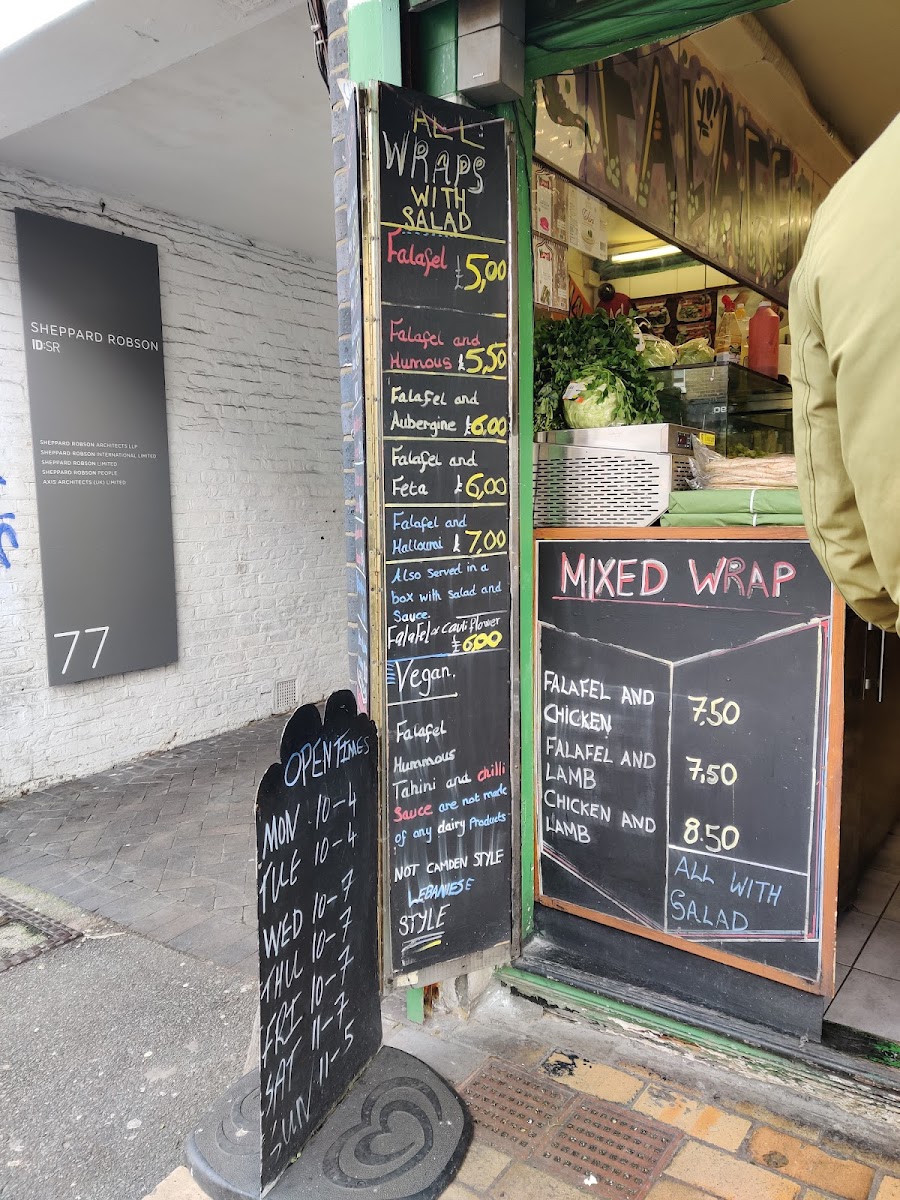 SHEPPARD ROBSON
ID:SR
SHEPPARD ROBSON ARCHITECTS LLP
SHEPPARD ROBSON INTERNATIONAL LIMITED
SHEPPARD ROBSON LIMITED
SHEPPARD ROBSON PEOPLE
AXIS ARCHITECTS (UK) LIMITED
77
ALL
WRAPS
WITH
SALAD
Falafel £5,00
Falafel and
Humous £5,50
Falafel and
Aubergine £6.00
Falafel and
Feta £6,00
Falafel and
Halloumi £7,00
Also served in a
box with salad and
Sauce.
Falafel or Cauliflower
£6.00
Vegan.
Falafel
Hummous
Tahini and chilli
Sauce are not made
of any dairy Products
NOT CAMDEN STYLE
LEBANESE
STYLE
OPEN TIMES
MON 10-4
TUE 10-4
WED 10-7
THU 10-7
FRI 10-7
SAT 11-7
SUN 11-5
MIXED WRAP
FALAFEL AND
CHICKEN 7.50
FALAFEL AND
LAMB 7,50
CHICKEN AND
LAMB 8.50
ALL WITH
SALAD